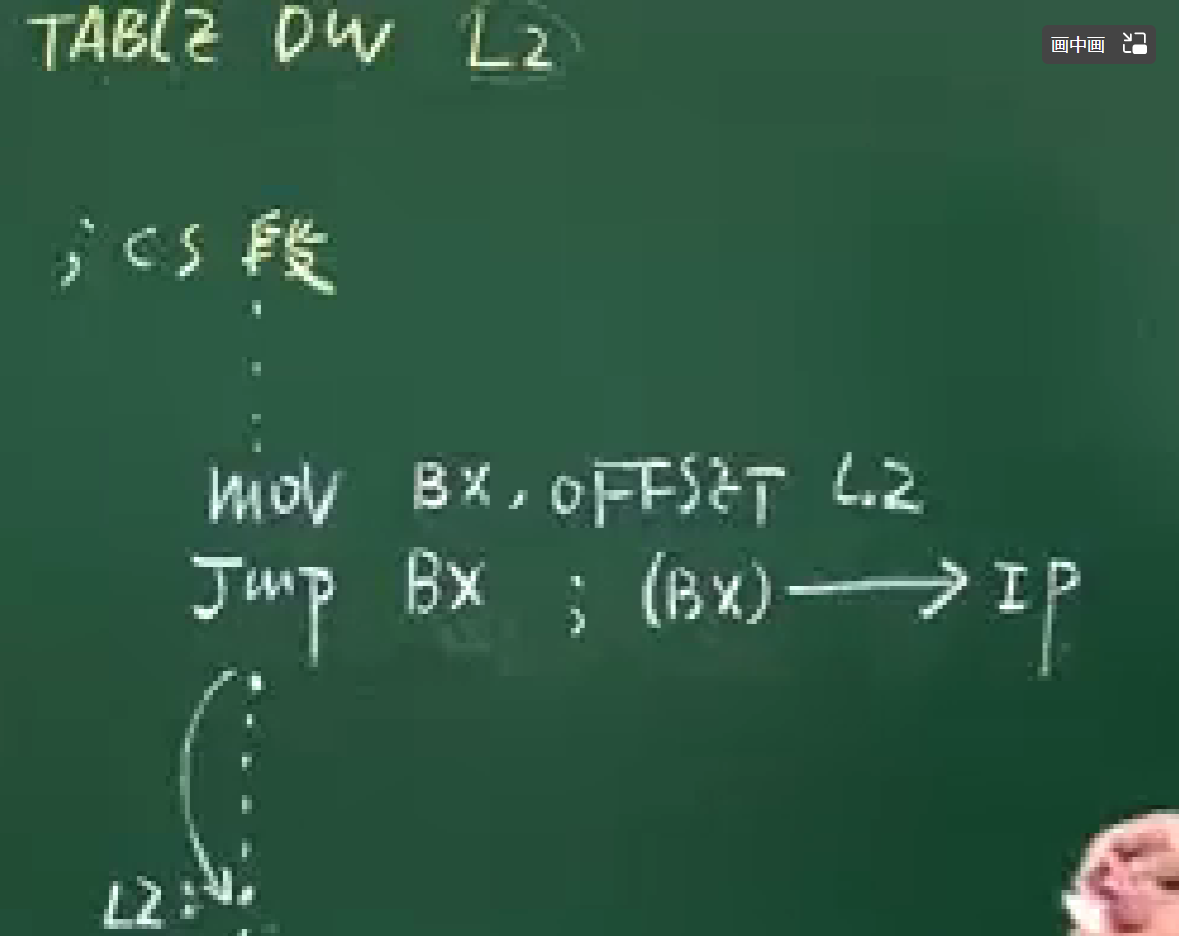 TABLE DW L2
画中画
; CS 段
MOV BX, OFFSET L2
Jmp BX ; (BX) → IP
L2: